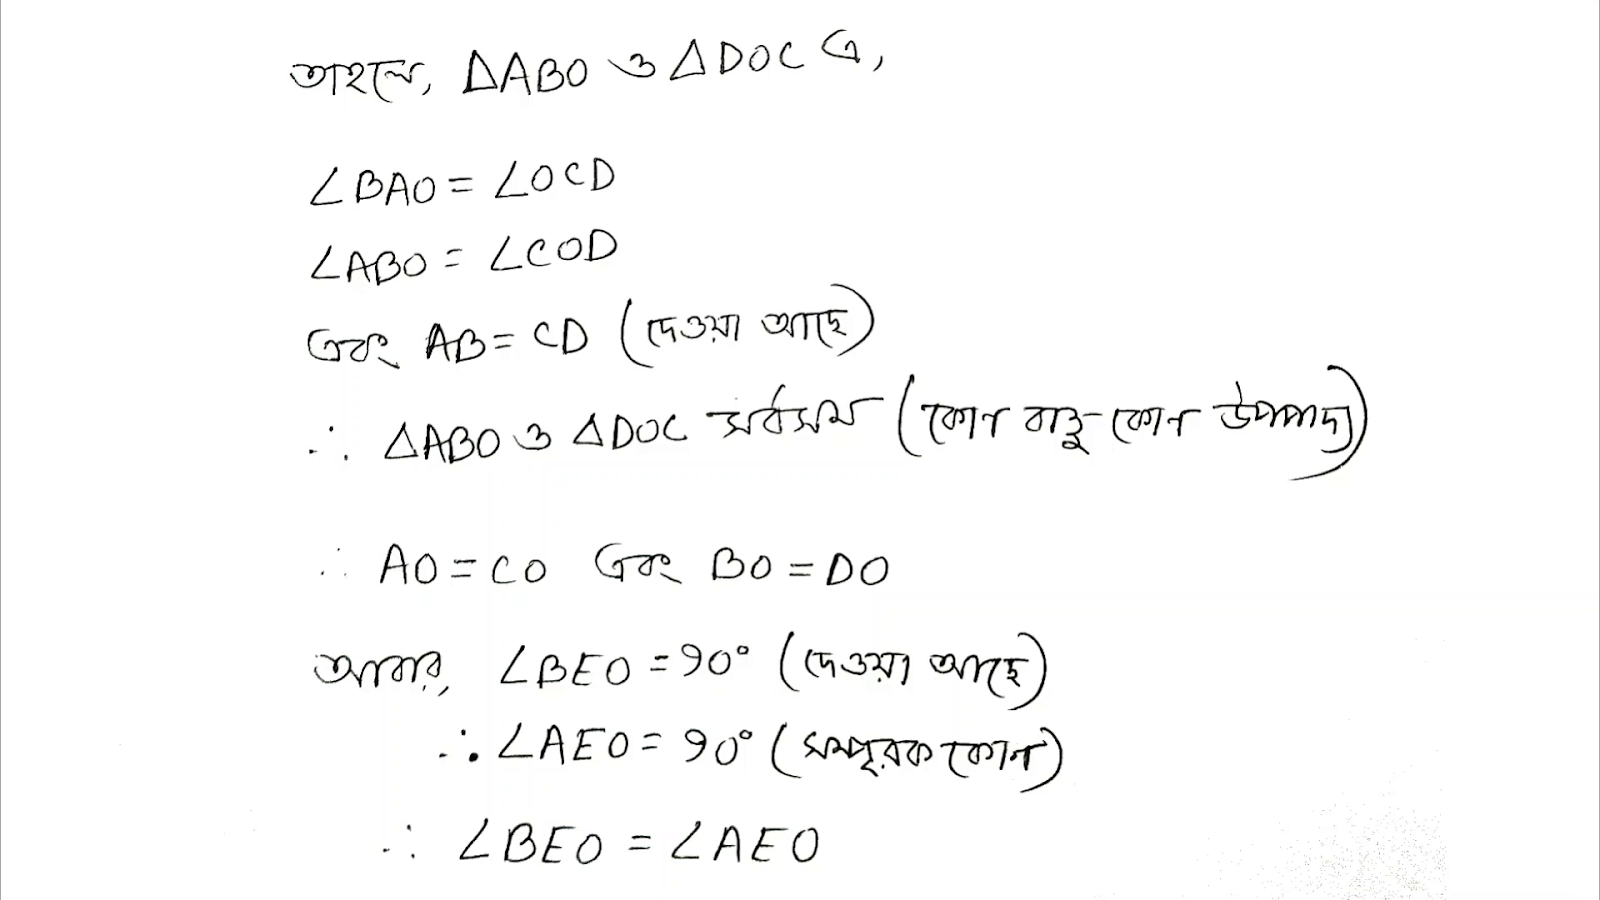 তাহলে, ΔABO ও ΔDOC এ,
∠BAO = ∠OCD
∠ABO = ∠COD
এবং AB = CD (দেওয়া আছে)
∴ ΔABO ও ΔDOC সর্বসম (কোন বাহু-কোন উপপাদ্য)
∴ AO = CO এবং BO = DO
আবার, ∠BEO = 90° (দেওয়া আছে)
∴ ∠AEO = 90° (সম্পূরক কোন)
∴ ∠BEO = ∠AEO